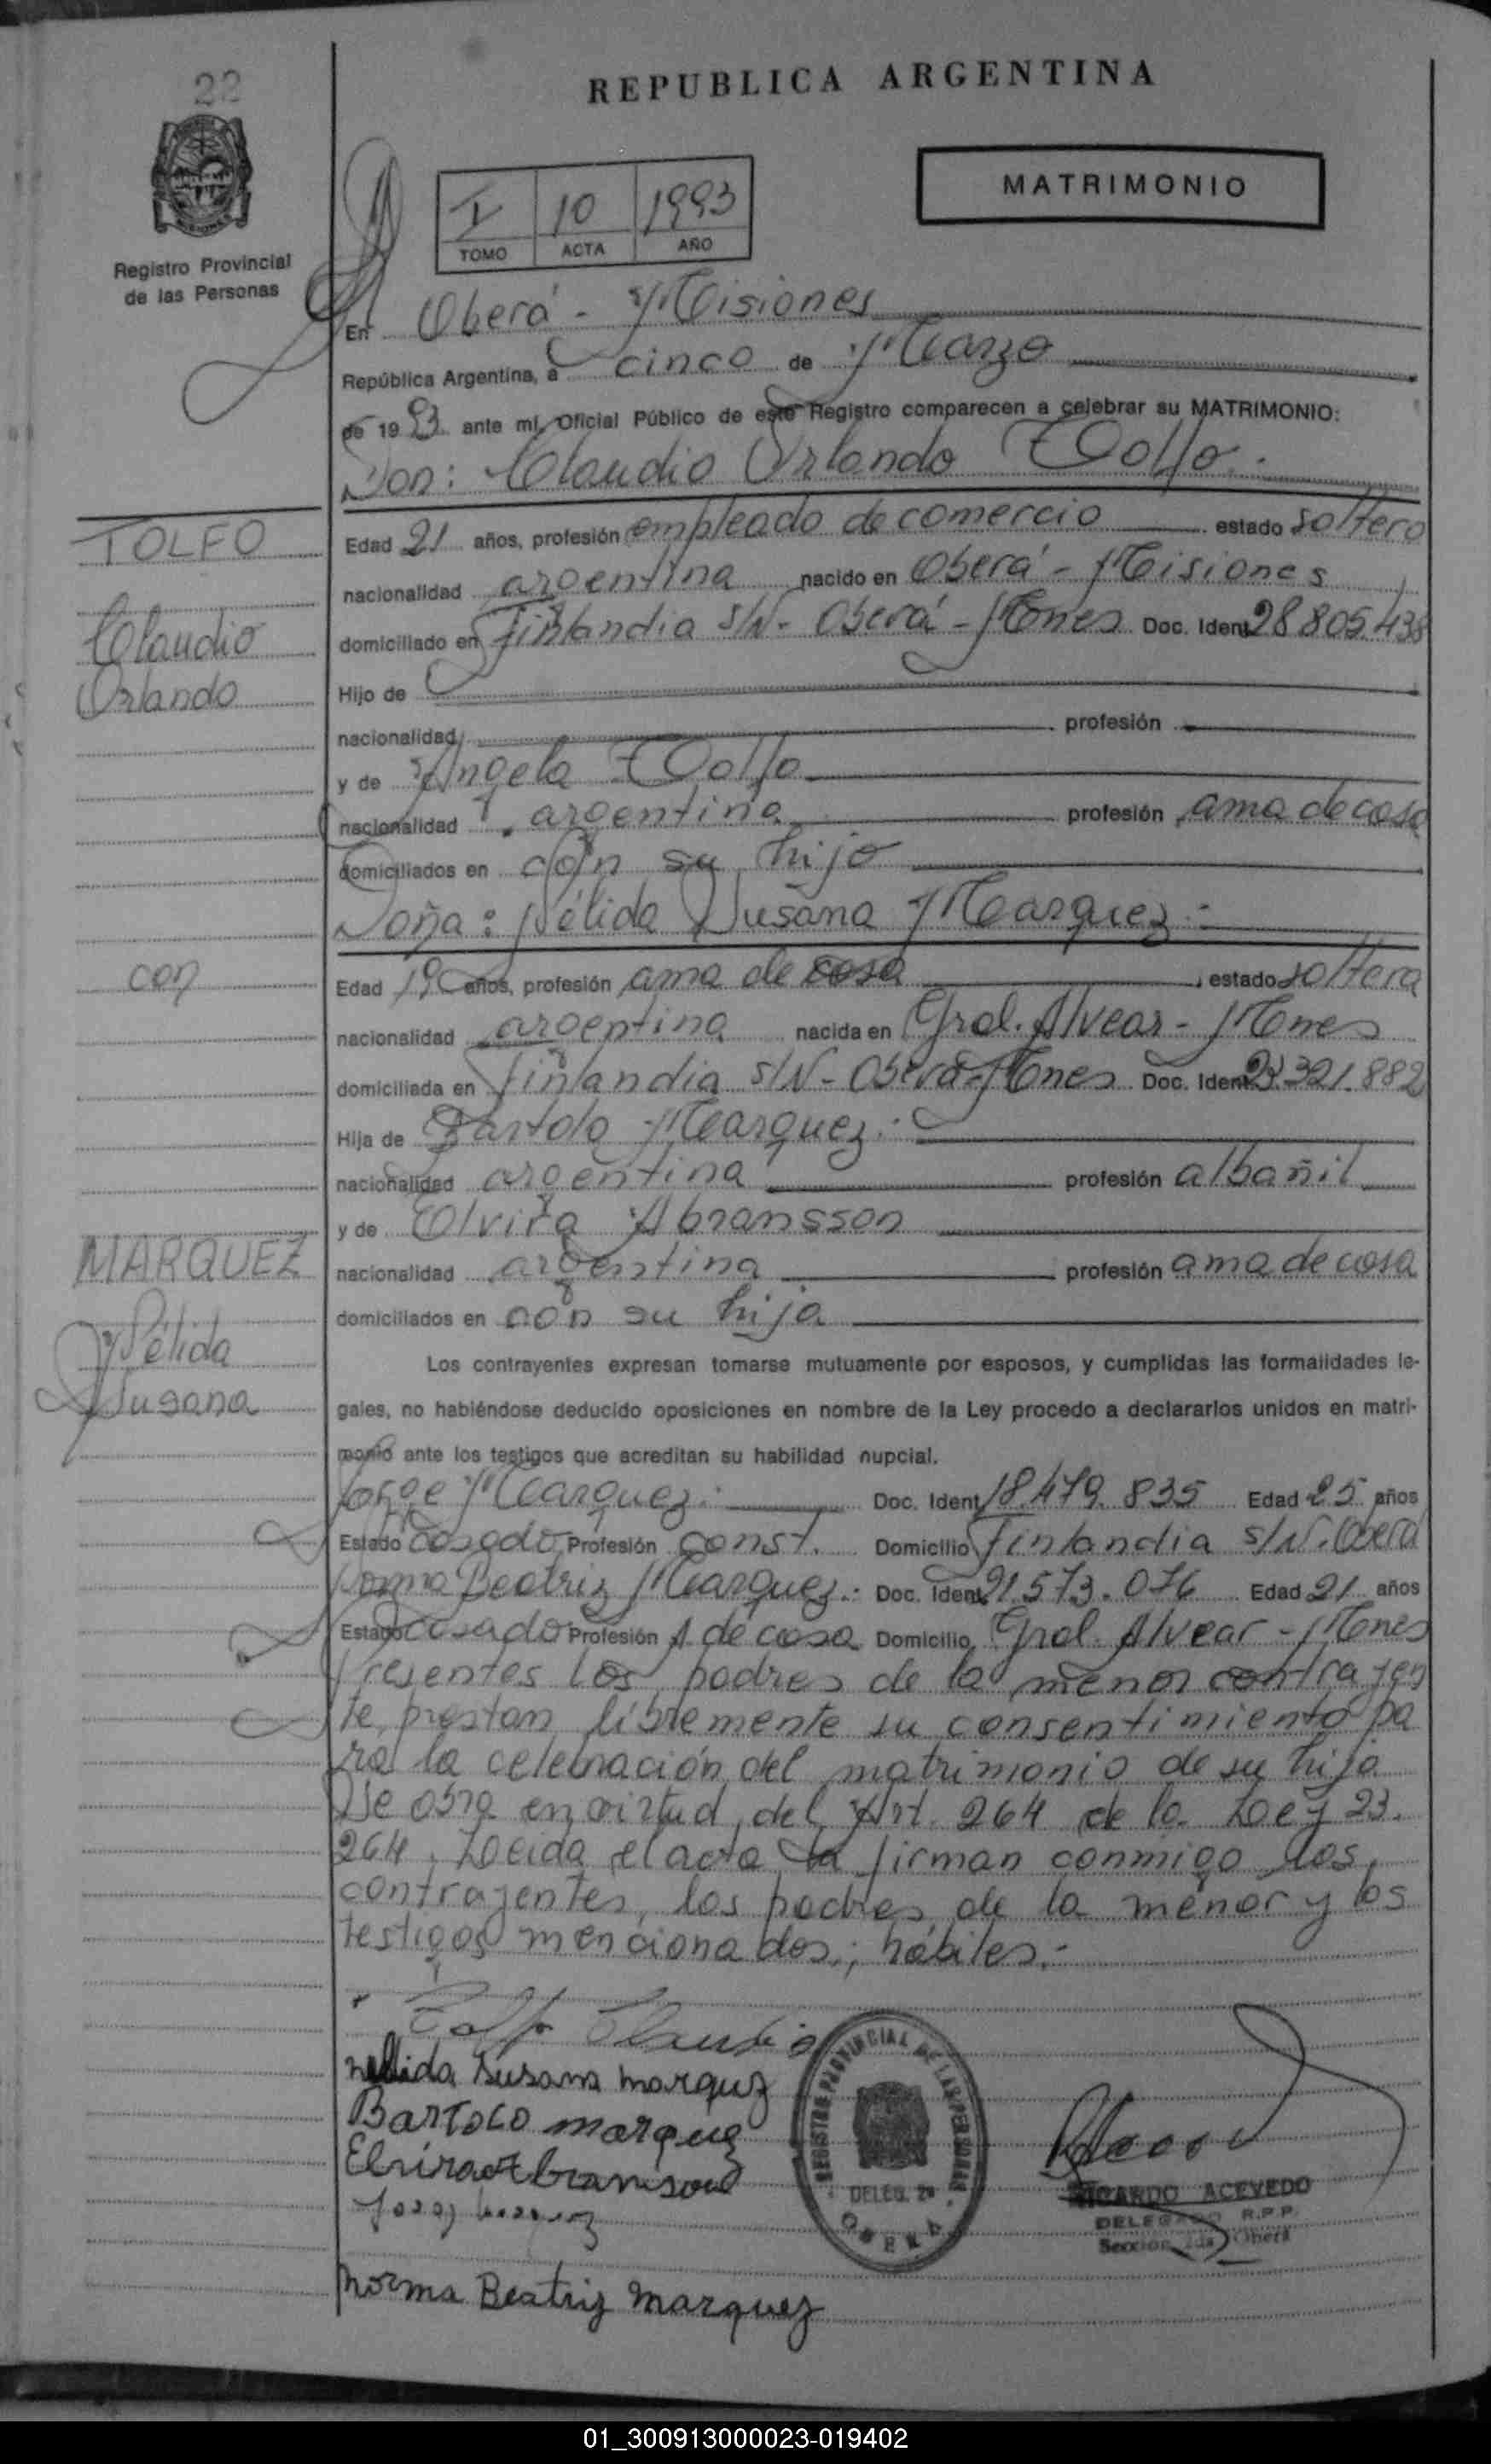 22
REPUBLICA ARGENTINA
Registro Provincial
de las Personas
I 10 1993
TOMO ACTA AÑO
MATRIMONIO
En Oberá - Misiones
República Argentina, a cinco de Marzo
de 1993 ante mí, Oficial Público de este Registro comparecen a celebrar su MATRIMONIO:
Don: Claudio Orlando Tolfo.
TOLFO
Claudio
Orlando
Edad 21 años, profesión empleado de comercio estado soltero
nacionalidad argentina nacido en Oberá - Misiones
domiciliado en Finlandia S/N - Oberá - Mones Doc. Ident 28805438
Hijo de
nacionalidad profesión
y de Angela Tolfo
nacionalidad argentina profesión ama de casa
domiciliados en con su hijo
Doña: Nélida Susana Marquez :
con
Edad 19 años, profesión ama de casa, estado soltera
nacionalidad argentina nacida en Gral. Alvear - Mones
domiciliada en Finlandia S/N - Oberá - Mones Doc. Ident 23.321.882
Hija de Bartolo Marquez :
nacionalidad argentina profesión albañil
y de Elvira Abransson
MARQUEZ
Nélida
Susana
nacionalidad argentina profesión ama de casa
domiciliados en con su hija
Los contrayentes expresan tomarse mutuamente por esposos, y cumplidas las formalidades le-
gales, no habiéndose deducido oposiciones en nombre de la Ley procedo a declararlos unidos en matri-
monio ante los testigos que acreditan su habilidad nupcial.
Jorge Marquez : Doc. Ident 18.479.835 Edad 25 años
Estado casado Profesión const. Domicilio Finlandia S/N. Oberá
Norma Beatriz Marquez : Doc. Ident 21.573.076 Edad 21 años
Estado casado Profesión A. de casa Domicilio Gral. Alvear - Mones
Presentes los padres de la menor contrayen
te prestan libremente su consentimiento pa
ra la celebración del matrimonio de su hija
Se obra en virtud del Art. 264 de la Ley 23.
264. Leida el acta la firman conmigo los
contrayentes, los padres de la menor y los
testigos mencionados; hábiles.-
Tolfo Claudio
Nellida Susana Marquez
Bartolo Marquez
Elvira Abramson
Norma Beatriz Marquez
REGISTRO PROVINCIAL DE LAS PERSONAS
DELEG. 2a
OBERA
RICARDO ACEVEDO
DELEGADO R.P.P.
Sección 2da Oberá
01_300913000023-019402